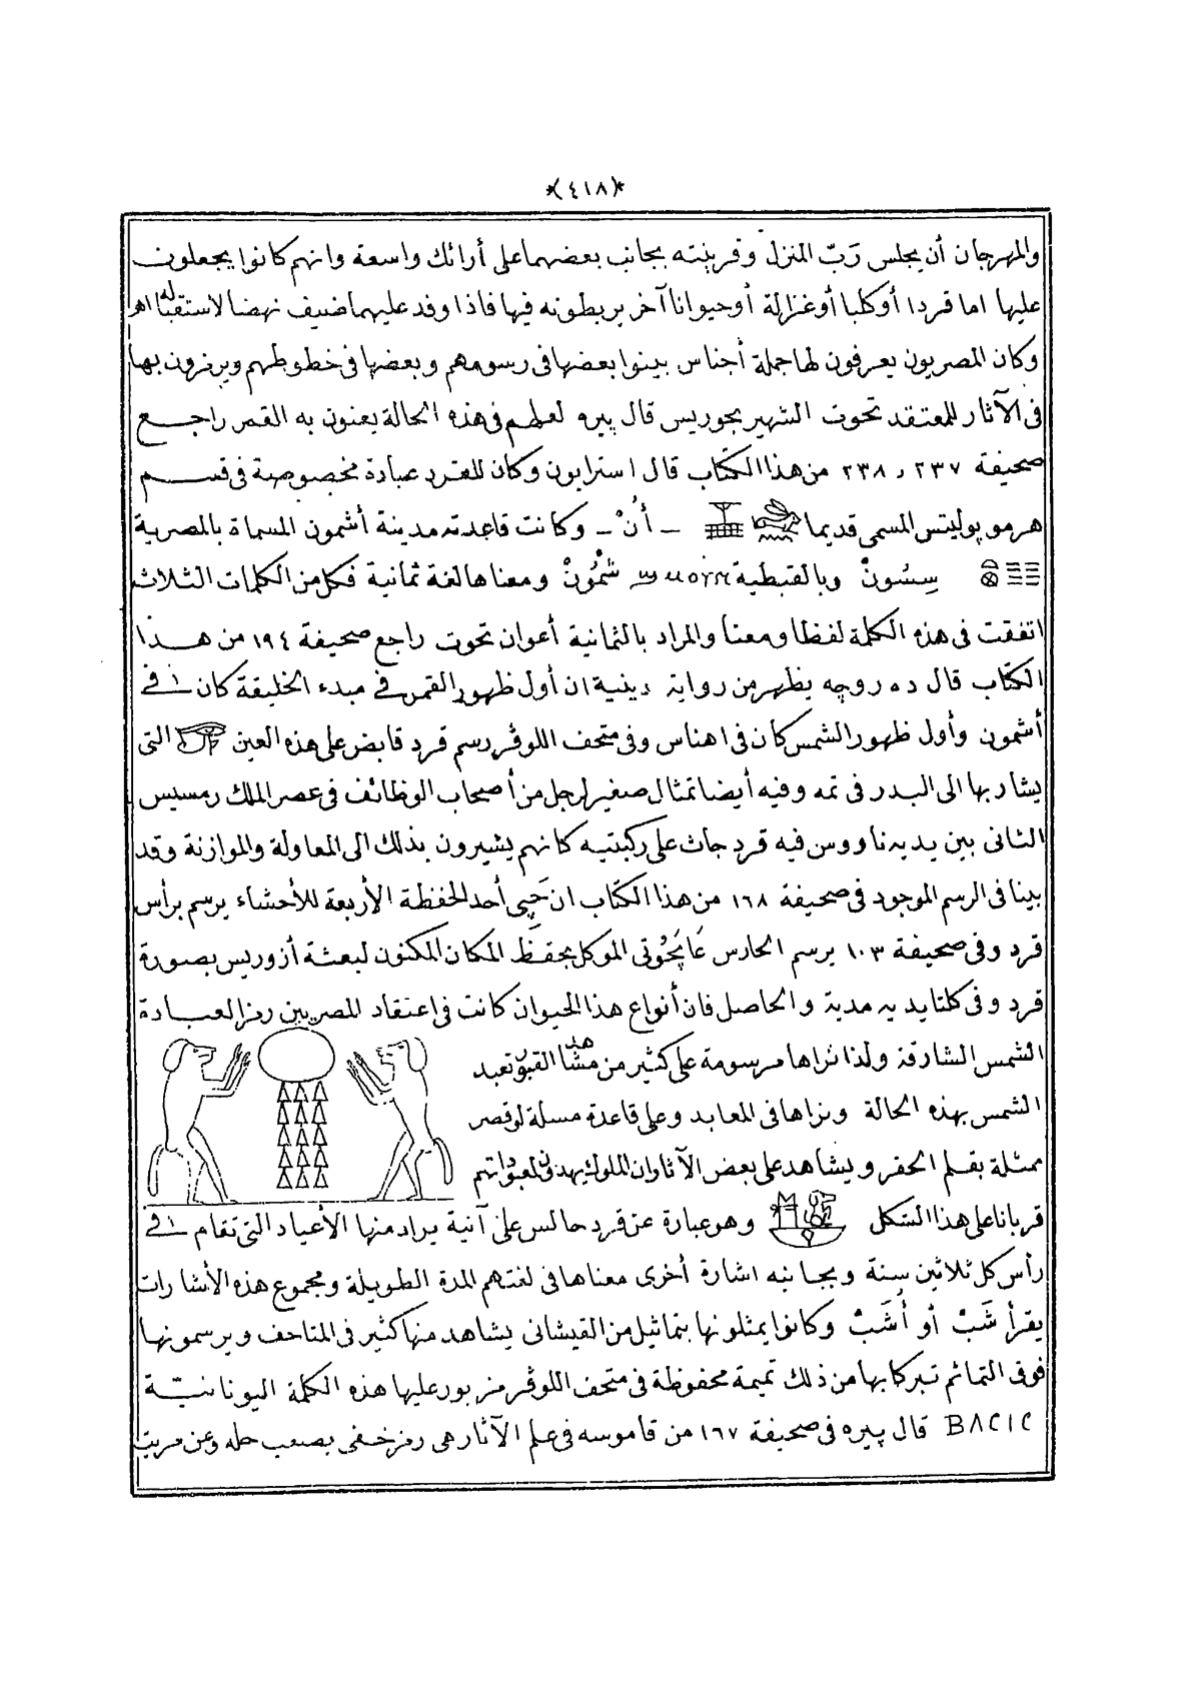 *(٤١٨)*
والمهرجان أن يجلس رَبّ المنزل وقرينته بجانب بعضهما على أرائك واسعة وانهم كانوا يجعلون
عليها اما قردا أوكلبا أوغزالة أوحيوانا آخر يربطونه فيها فاذا وفد عليهما ضيف نهضا لاستقباله اهر
وكان المصريون يعرفون لها جملة أجناس بينوا بعضها فى رسومهم وبعضها فى خطوطهم ويرمزون بها
فى الآثار للمعتقد تحوت الشهير بجوريس قال پيره لعلهم فى هذه الحالة يعنون به القمر راجع
صحيفة ٢٣٧ و ٢٣٨ من هذا الكتاب قال استرابون وكان للقرد عبادة مخصوصة فى قسم
هرموپوليتس المسمى قديما ـ أُنْ ـ وكانت قاعدته مدينة أشمون المسماة بالمصرية
سِسُونْ وبالقبطية ϣⲙⲟⲩⲛ شمُونْ ومعناها لغة ثمانية فكل من الكلمات الثلاث
اتفقت فى هذه الكلمة لفظا ومعنا والمراد بالثمانية أعوان تحوت راجع صحيفة ١٩٤ من هذا
الكتاب قال ده روچه يظهر من رواية دينية ان أول ظهور القمر فى مبدء الخليقة كان فى
أشمون وأول ظهور الشمس كان فى اهناس وفى متحف اللوڤر رسم قرد قابض على هذه العين التى
يشار بها الى البدر فى تمه وفيه أيضا تمثال صغير لرجل من أصحاب الوظائف فى عصر الملك رمسيس
الثانى بين يديه ناووس فيه قرد جاث على ركبتيه كانهم يشيرون بذلك الى المعاولة والموازنة وقد
بينا فى الرسم الموجود فى صحيفة ١٦٨ من هذا الكتاب ان حَپِى أحد الحفظة الأربعة للأحشاء يرسم برأس
قرد وفى صحيفة ١٠٣ يرسم الحارس الموكل بحفظ المكان المكنون لبعثة أزوريس بصورة
قرد وفى كلتا يديه مدية والحاصل فان أنواع هذا الحيوان كانت فى اعتقاد المصريين رمزا لعبادة
الشمس الشارقة ولذا نراها مرسومة على كثير من مشاهد القبور تعبد
الشمس بهذه الحالة ونراها فى المعابد وعلى قاعدة مسلة لوقصر
ممثلة بقلم الحفر ويشاهد على بعض الآثار ان الملوك يهدون لمعبوداتهم
قربانا على هذا الشكل وهو عبارة عن قرد جالس على آنية يراد منها الأعياد التى تقام فى
رأس كل ثلاثين سنة وبجانبه اشارة أخرى معناها فى لغتهم المدة الطويلة ومجموع هذه الأشارات
يقرأ شَبْ أو أُشَبْ وكانوا يمثلونها بتماثيل من القيشانى يشاهد منها كثير فى المتاحف ويرسمونها
فوق التمائم تبركا بها من ذلك تميمة محفوظة فى متحف اللوڤر مزبور عليها هذه الكلمة اليونانيّة
BACIC قال پيره فى صحيفة ١٦٧ من قاموسه فى علم الآثار هى رمز خفى يصعب حله وعن مريت